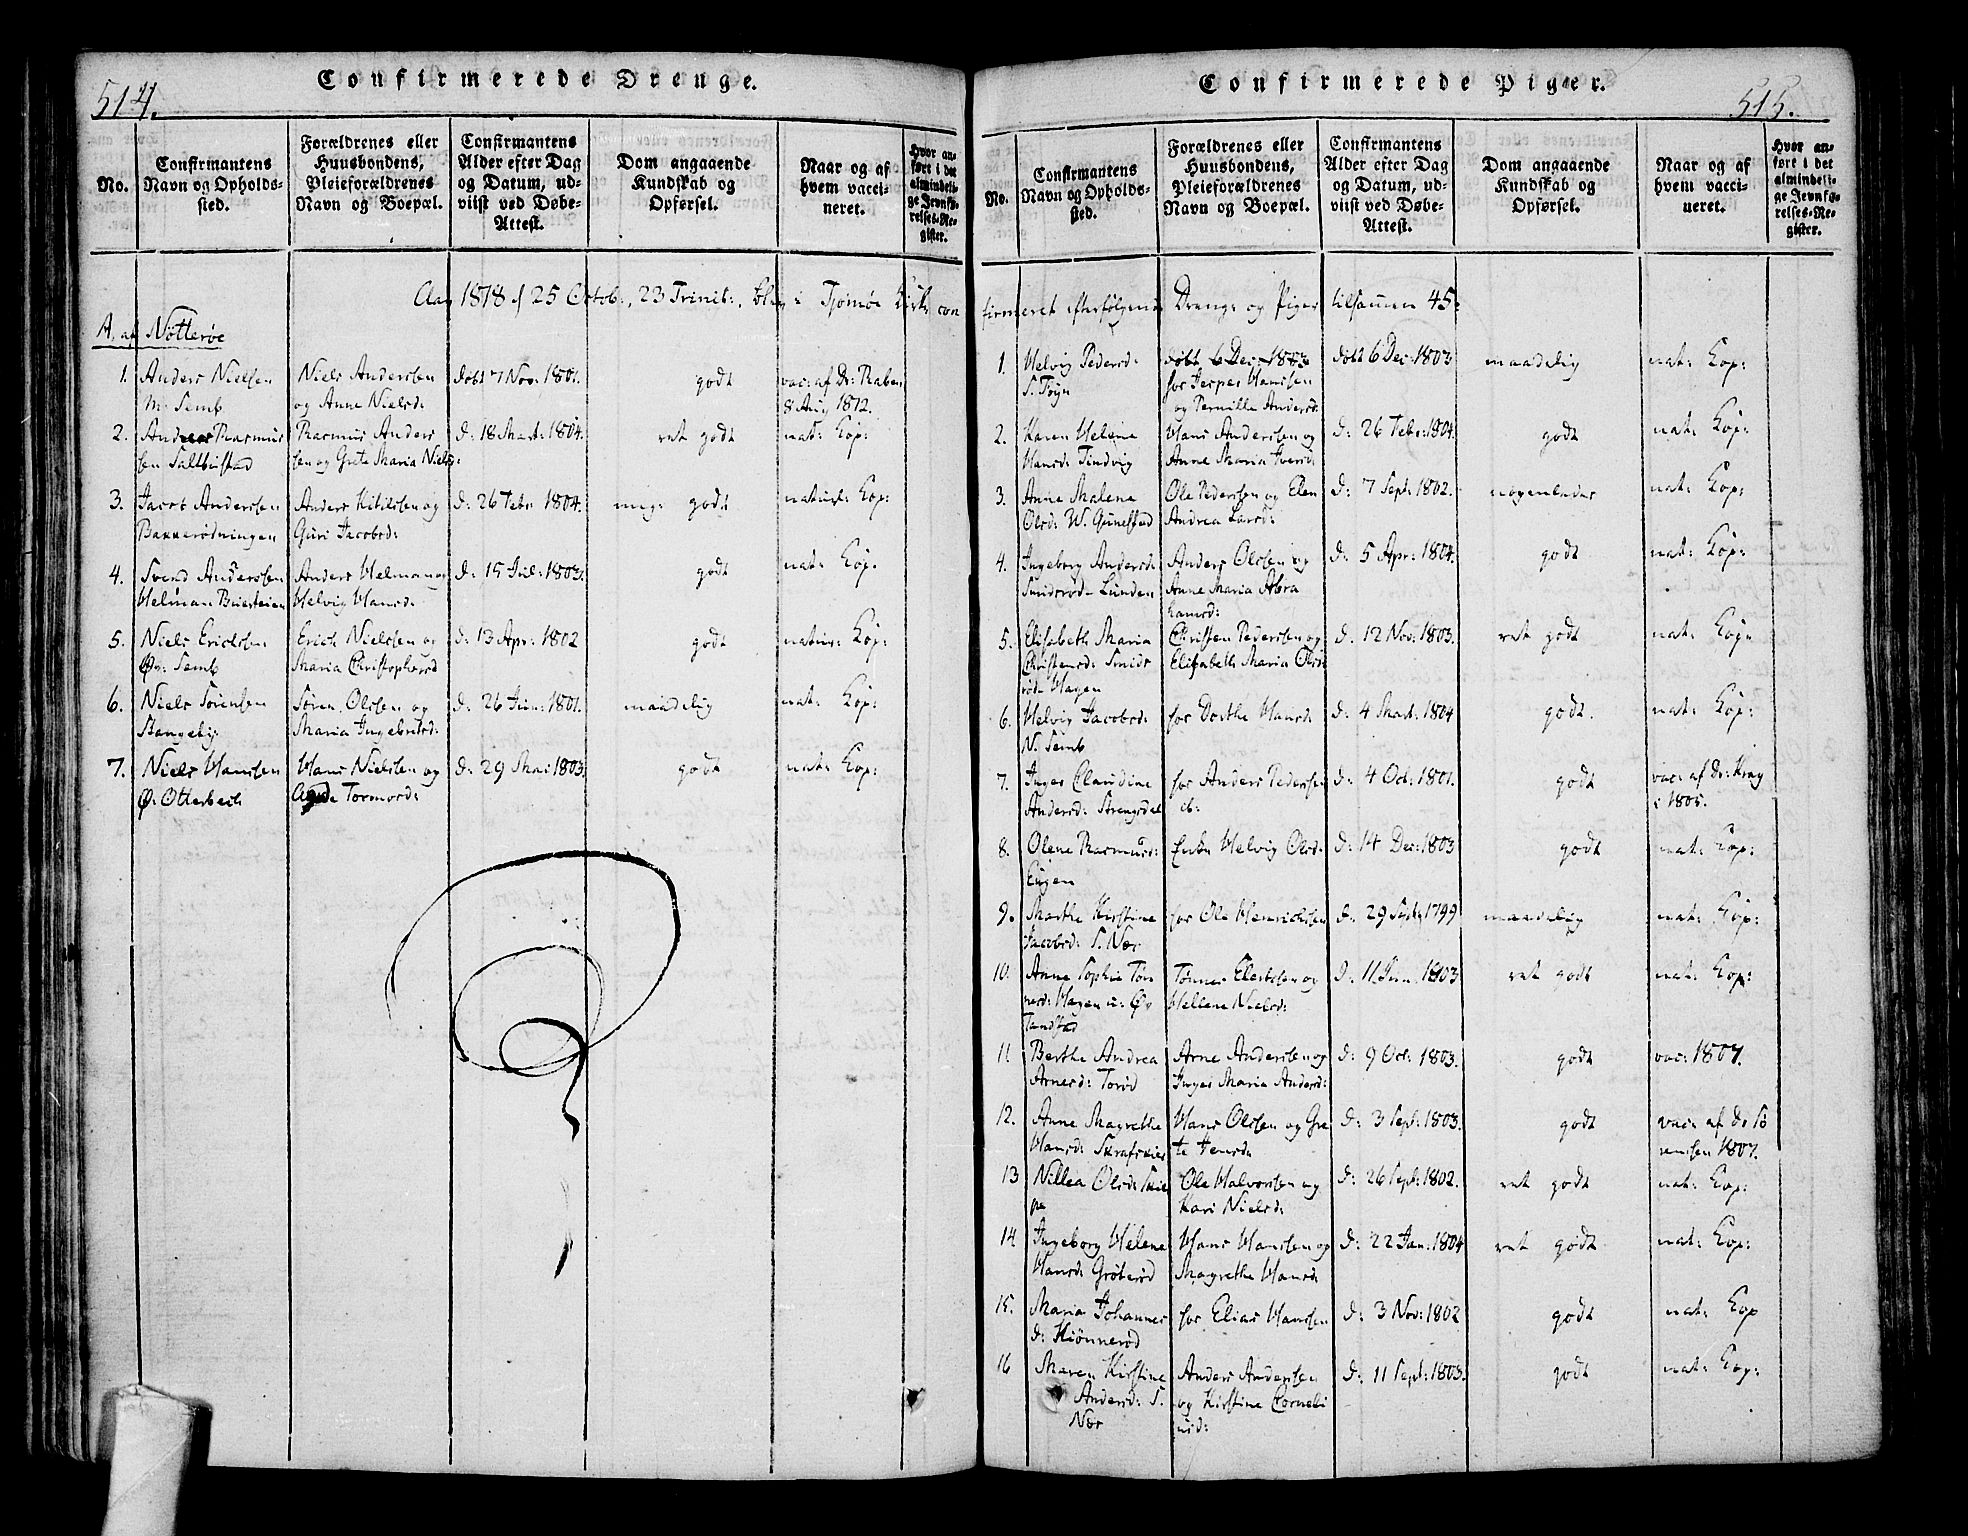 514.
Confirmerede Drenge.
No.
Confirmantens
Navn og Opholds-
sted.
Forældrenes eller
Huusbondens,
Pleieforældrenes
Navn og Boepæl.
Confirmantens
Alder efter Dag
og Datum, ud-
viist ved Døbe-
Attest.
Dom angaaende
Kundskab og
Opførsel.
Naar og af
hvem vacci-
neret.
Hvor an-
ført i det
almindeli-
ge Jevnfø-
relses-Re-
gister.
Aar 1818 d 25 Octob:, 23 Trinit:, blev i Tjømøe Kirke con
A, af Nötterøe
1. Anders Nielsen Niels Andersen døbt 7 Nov: 1801. godt vac: af Dr: Raben
M: Semb og Anne Nielsd: 8 Aug 1812.
2. Anders Rasmus Rasmus Anders d: 18 Mart: 1804. ret godt nat: Kop:
sen Saltbustad sen og Grete Maria Nielsd:
3. Jacob Andersen Anders Kittilsen og d: 26 Febr 1804. meg: godt naturl: Kop:
Bakkerødningen Guri Jacobsd:
4. Svend Andersen Anders Helman og d: 15 Jul: 1803. godt nat: Kop.
Helman Helvig Hansd:
5. Niels Ericksen Erich Nielsen og d: 13 Apr: 1802 godt natur: Kop:
Ør: Semb Maria Christophersd
6. Niels Sørensen Søren Olsen og d: 26 Jun: 1801. maadelig nat: Kop:
Bangeby Maria Ingebretsd:
7. Niels Hansen Hans Nielsen og d: 29 Mai 1803. godt nat: Kop:
Ø: Otterbech Tormord:
515.
Confirmerede Piger.
No.
Confirmantens
Navn og Opholds-
sted.
Forældrenes eller
Huusbondens,
Pleieforældrenes
Navn og Boepæl.
Confirmantens
Alder efter Dag
og Datum, ud-
viist ved Døbe-
Attest.
Dom angaaende
Kundskab og
Opførsel.
Naar og af
hvem vacci-
neret.
Hvor an-
ført i det
almindeli-
ge Jevnfø-
relses-Re-
gister.
firmeret efterfølgende Drenge og Piger tilsammen 45:
1. Helvig Pedersd: døbt 6 Dec: 1803 døbt 6 Dec: 1803 maadelig nat: Kop:
S. Føyn for Jesper Hansen
og Pernille Andersd:
2. Karen Helene Hans Andersen og d: 26 Febr: 1804. godt nat: Kop:
Hansd: Tindvig Anne Maria Iversd:
3. Anne Malene Ole Pedersen og Elen d: 7 Sept: 1802. nogenledes nat: Kop:
Olsd: W. Gunestad Andrea Larsd:
4. Ingeborg Andersd: Anders Olsen og d: 5 Apr: 1804. godt nat: Kop:
Smidsrød-Lunden Anne Maria Abra
hamsd:
5. Elisabeth Maria Christen Pedersen og d: 12 Nov: 1803. ret godt nat: Kop:
Christensd: Smids Elisabeth Maria Olsd:
rød-Hagen
6. Helvig Jacobsd: for Dorthe Hansd: d: 4 Mart: 1804 godt. nat: Kop:
N. Semb
7. Inger Claudine for Anders Pedersen d: 4 Oct: 1801. godt vac: af dr: Krag
Andersd: Strengsdal cb: i 1805.
8. Olene Rasmusd: Enke Helvig Olsd: d: 14 Dec: 1803 godt nat: Kop:
Eugen
9. Marthe Kirstine for Ole Henrichsen d: 29 Sept 1799 maadelig nat: Kop:
Jacobsd: S. Nær
10. Anne Sophie Tøn Tønnes Ellertsen og d: 11 Jun: 1803 ret godt nat: Kop:
nesd: Hagen u: Ør Hellene Nielsd:
Tandstad
11 Berthe Andrea Arne Andersen og d: 9 Oct: 1803. godt vac: 1807.
Arnesd: Torød Inger Maria Andersd:
12. Anne Magrethe Hans Olsen og Gre d: 3 Sept: 1803. godt vac: af dr Sö
Hansd: Skrafskier te Jensd: rensen 1807.
13 Nillea Olsd: Skie Ole Halvorsen og d: 26 Sept: 1802. ret godt nat: Kop:
pe Kari Nielsd:
14 Ingeborg Helene Hans Hansen og d: 22 Jan: 1804 ret godt nat: Kop:
Hansd: Grøterød Magrethe Hansd:
15. Maria Johannes for Elias Hansen d: 3 Nov: 1802 godt nat: Kop
d: Kiönnerød
16 Maren Kirstine Anders Andersen d: 11 Sept: 1803. godt nat: Kop:
Andersd: S. og Kirstine Corneli
Nær usd: